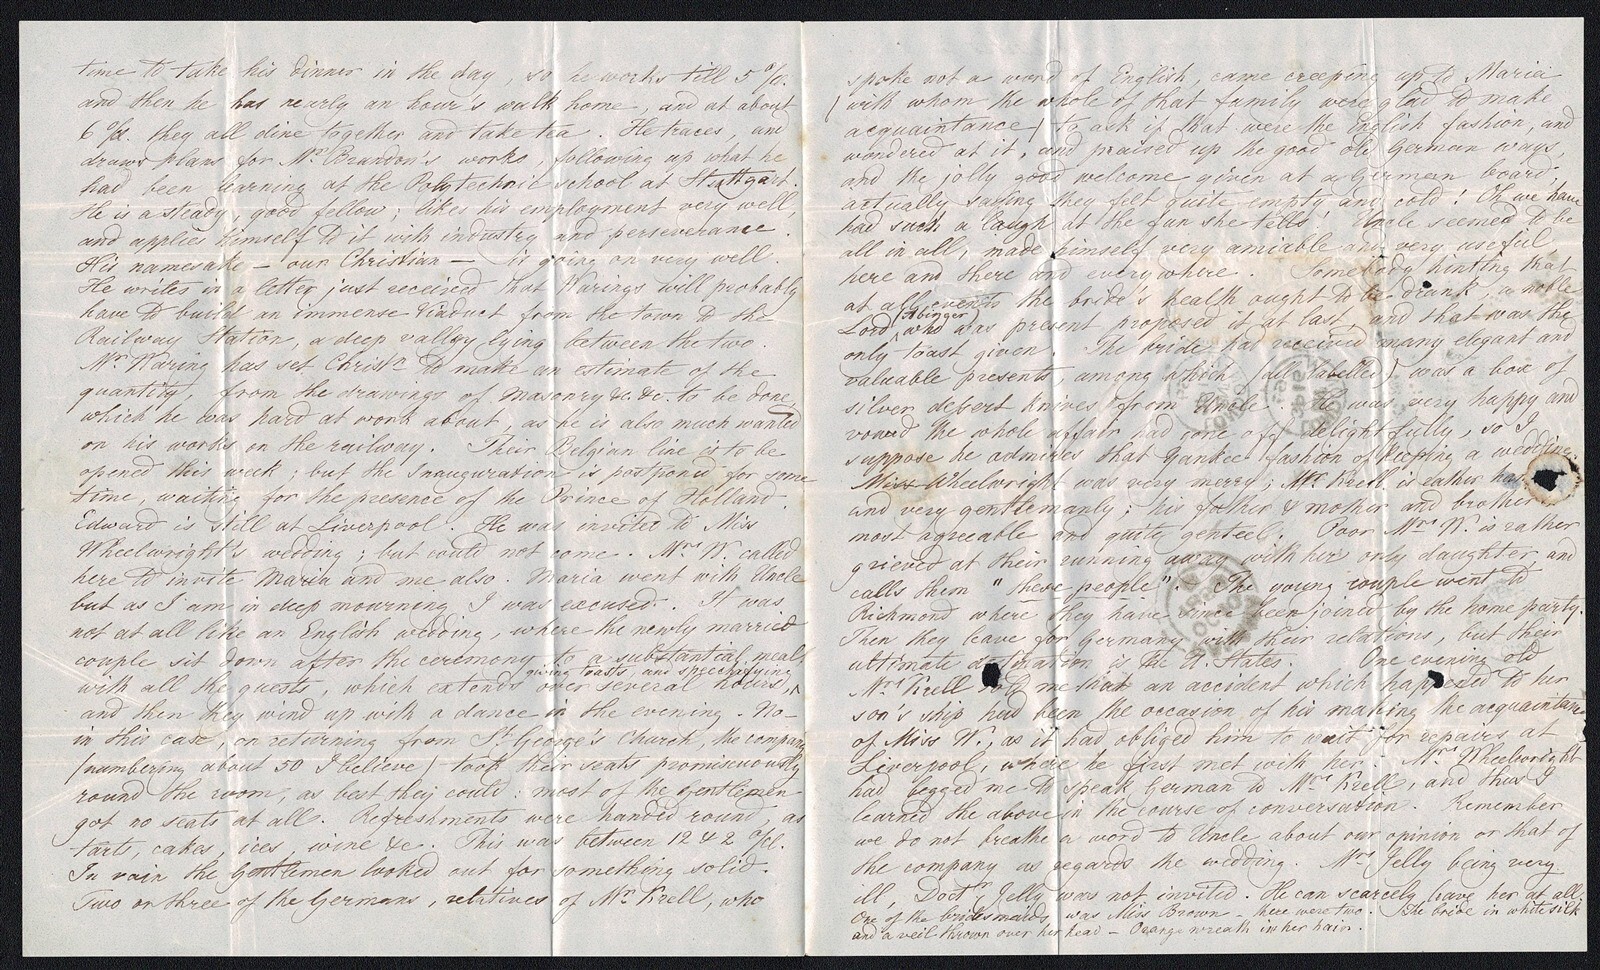 time to take his dinner in the day, so he works till 5 o/cl.
and then he has nearly an hour's walk home, and at about
6 o/cl. they all dine together and take tea. He traces, and
draws plans for Mr Beardon's works following up what he
had been learning at the Polytechnic school at Stuttgart.
He is a steady, good fellow; likes his employment very well,
and applies himself to it with industry and perseverance.
His namesake — our Christian — is going on very well.
He writes in a letter just received that Warings will probably
have to build an immense Viaduct from the town to the
Railway Station, a deep valley lying between the two.
Mr Waring has set Christn to make an estimate of the
quantity, from the drawings of masonry &c &c. to be done,
which he was hard at work about, as he is also much wanted
on his works on the railway. Their Belgian line is to be
opened this week; but the Inauguration is postponed for some
time, waiting for the presence of the Prince of Holland.
Edward is still at Liverpool. He was invited to Miss
Wheelwright's wedding; but could not come. Mrs W. called
here to invite Maria and me also. Maria went with Uncle
but as I am in deep mourning I was excused. It was
not at all like an English wedding, where the newly married
couple sit down after the ceremony to a substantial meal
giving toasts, and speechifying
with all the guests, which extends over several hours,
and then they wind up with a dance in the evening. No—
in this case, on returning from St George's Church, the company
(numbering about 50 I believe) took their seats promiscuously
round the room, as best they could: most of the gentlemen
got no seats at all. Refreshments were handed round, as
tarts, cakes, ices, wine &c. This was between 12 & 2 o/cl.
In vain the Gentlemen looked out for something solid.
Two or three of the Germans, relatives of Mr Krell, who
spoke not a word of English, came creeping up to Maria
(with whom the whole of that family were glad to make
acquaintance) to ask if that were the English fashion, and
wondered at it, and praised up the good old German ways,
and the jolly good welcome given at a German board,
actually saying they felt quite empty and cold! Oh we have
had such a laugh at the fun she tells! Uncle seemed to be
all in all, made himself very amiable and very useful
here and there and everywhere. Somebody hinting that
at all events the bride's health ought to be drunk, a noble
Abinger
Lord, who was present proposed it at last, and that was the
only toast given. The bride has received many elegant and
valuable presents, among which (all labelled) was a box of
silver dessert knives from Uncle. He was very happy and
vowed the whole affair had gone off delightfully, so I
suppose he admires that Yankee fashion of keeping a wedding.
Miss Wheelwright was very merry; Mr Krell is rather
and very gentlemanly; his father & mother and brother
most agreeable and quite genteel. Poor Mrs W. is rather
grieved at their running away with her only daughter, and
calls them "these people". The young couple went to
Richmond where they have since been joined by the home party.
Then they leave for Germany with their relations, but their
ultimate destination is the U. States. One evening old
Mrs Krell told me that an accident which happened to her
son's ship had been the occasion of his making the acquaintance
of Miss W., as it had obliged him to wait for repairs at
Liverpool, where he first met with her. Mrs Wheelwright
had begged me to speak German to Mrs Krell, and thus I
learned the above in the course of conversation. Remember
we do not breathe a word to Uncle about our opinion or that of
the company as regards the wedding. Mrs Jelly being very
ill, Doctr Jelly was not invited. He can scarcely leave her at all.
One of the bridesmaids was Miss Brown — there were two. The bride in white silk
and a veil thrown over her head — Orange wreath in her hair.